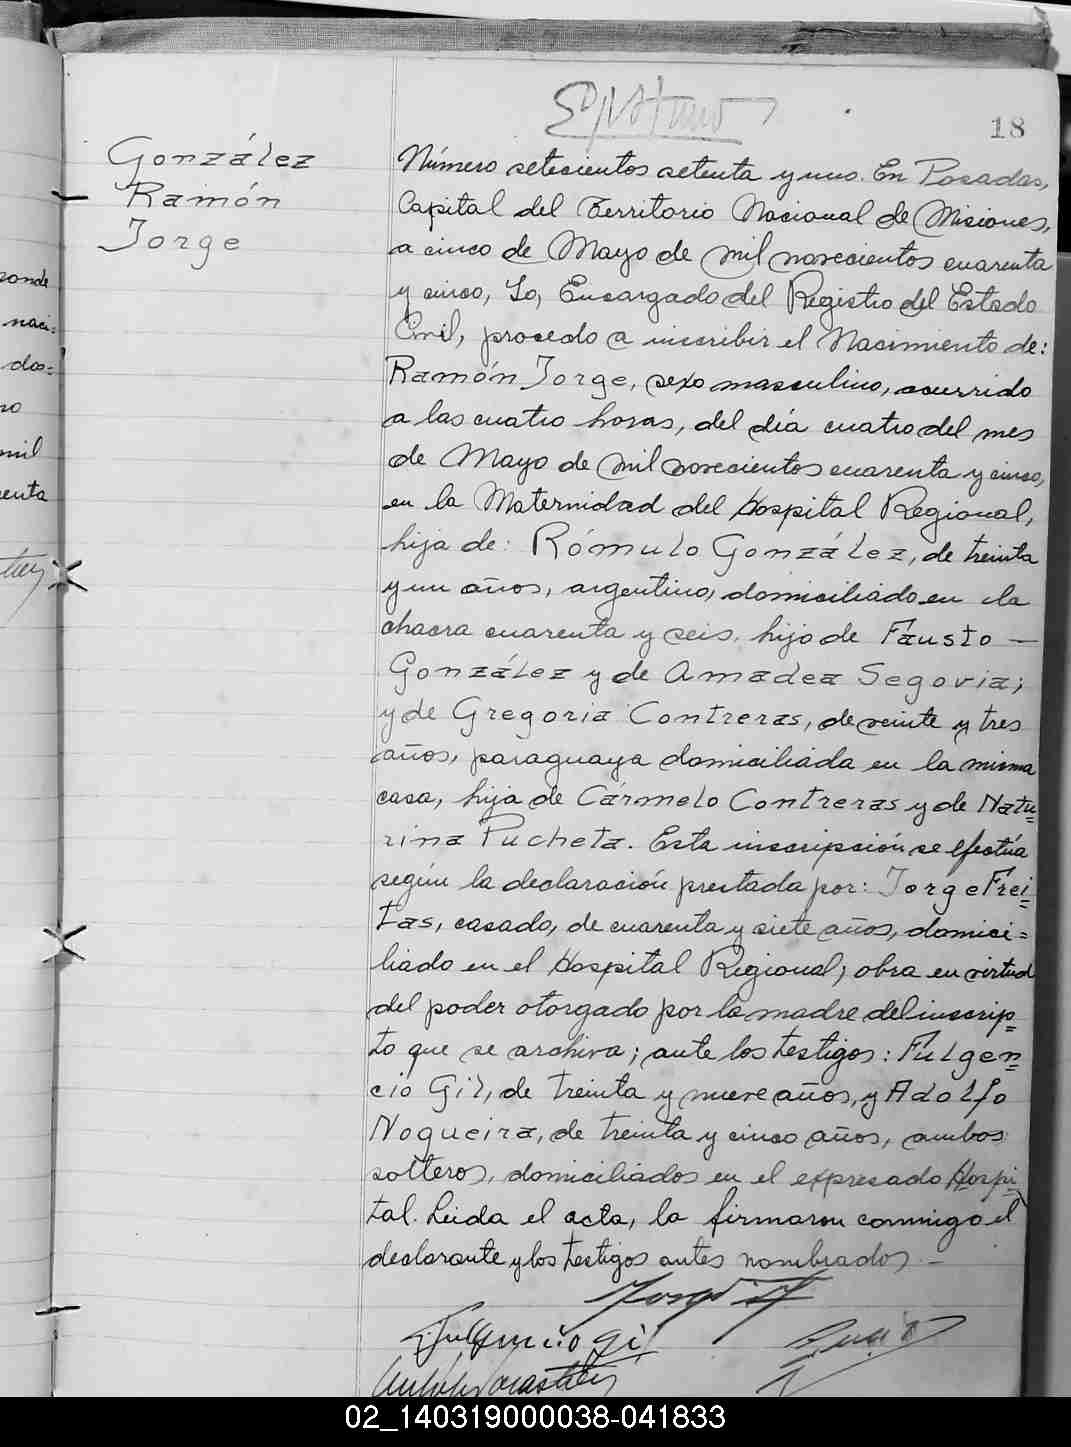 18
González
Ramón
Jorge
Número setecientos setenta y uno. En Posadas,
Capital del Territorio Nacional de Misiones,
a cinco de Mayo de mil novecientos cuarenta
y cinco, Yo, Encargado del Registro del Estado
Civil, procedo a inscribir el Nacimiento de:
Ramón Jorge, sexo masculino, ocurrido
a las cuatro horas, del día cuatro del mes
de Mayo de mil novecientos cuarenta y cinco,
en la Maternidad del Hospital Regional,
hija de: Rómulo González, de treinta
y un años, argentino, domiciliado en la
chacra cuarenta y seis, hijo de Fausto —
González y de Amadea Segovia;
y de Gregoria Contreras, de veinte y tres
años, paraguaya domiciliada en la misma
casa, hija de Cármelo Contreras y de Natu=
rina Pucheta. Esta inscripsción se efectúa
según la declaración prestada por: Jorge Frei=
tas, casado, de cuarenta y siete años, domici=
liado en el Hospital Regional; obra en virtud
del poder otorgado por la madre del inscrip=
to que se archiva; ante los testigos: Fulgen=
cio Gil, de treinta y nueve años, y Adolfo
Nogueira, de treinta y cinco años, ambos
solteros, domiciliados en el expresado Hospi=
tal. Leida el acta, la firmaron conmigo el
declarante y los testigos antes nombrados —
Fulgencio Gil
ronde
naci=
dos=
no
mil
enta
02_140319000038-041833